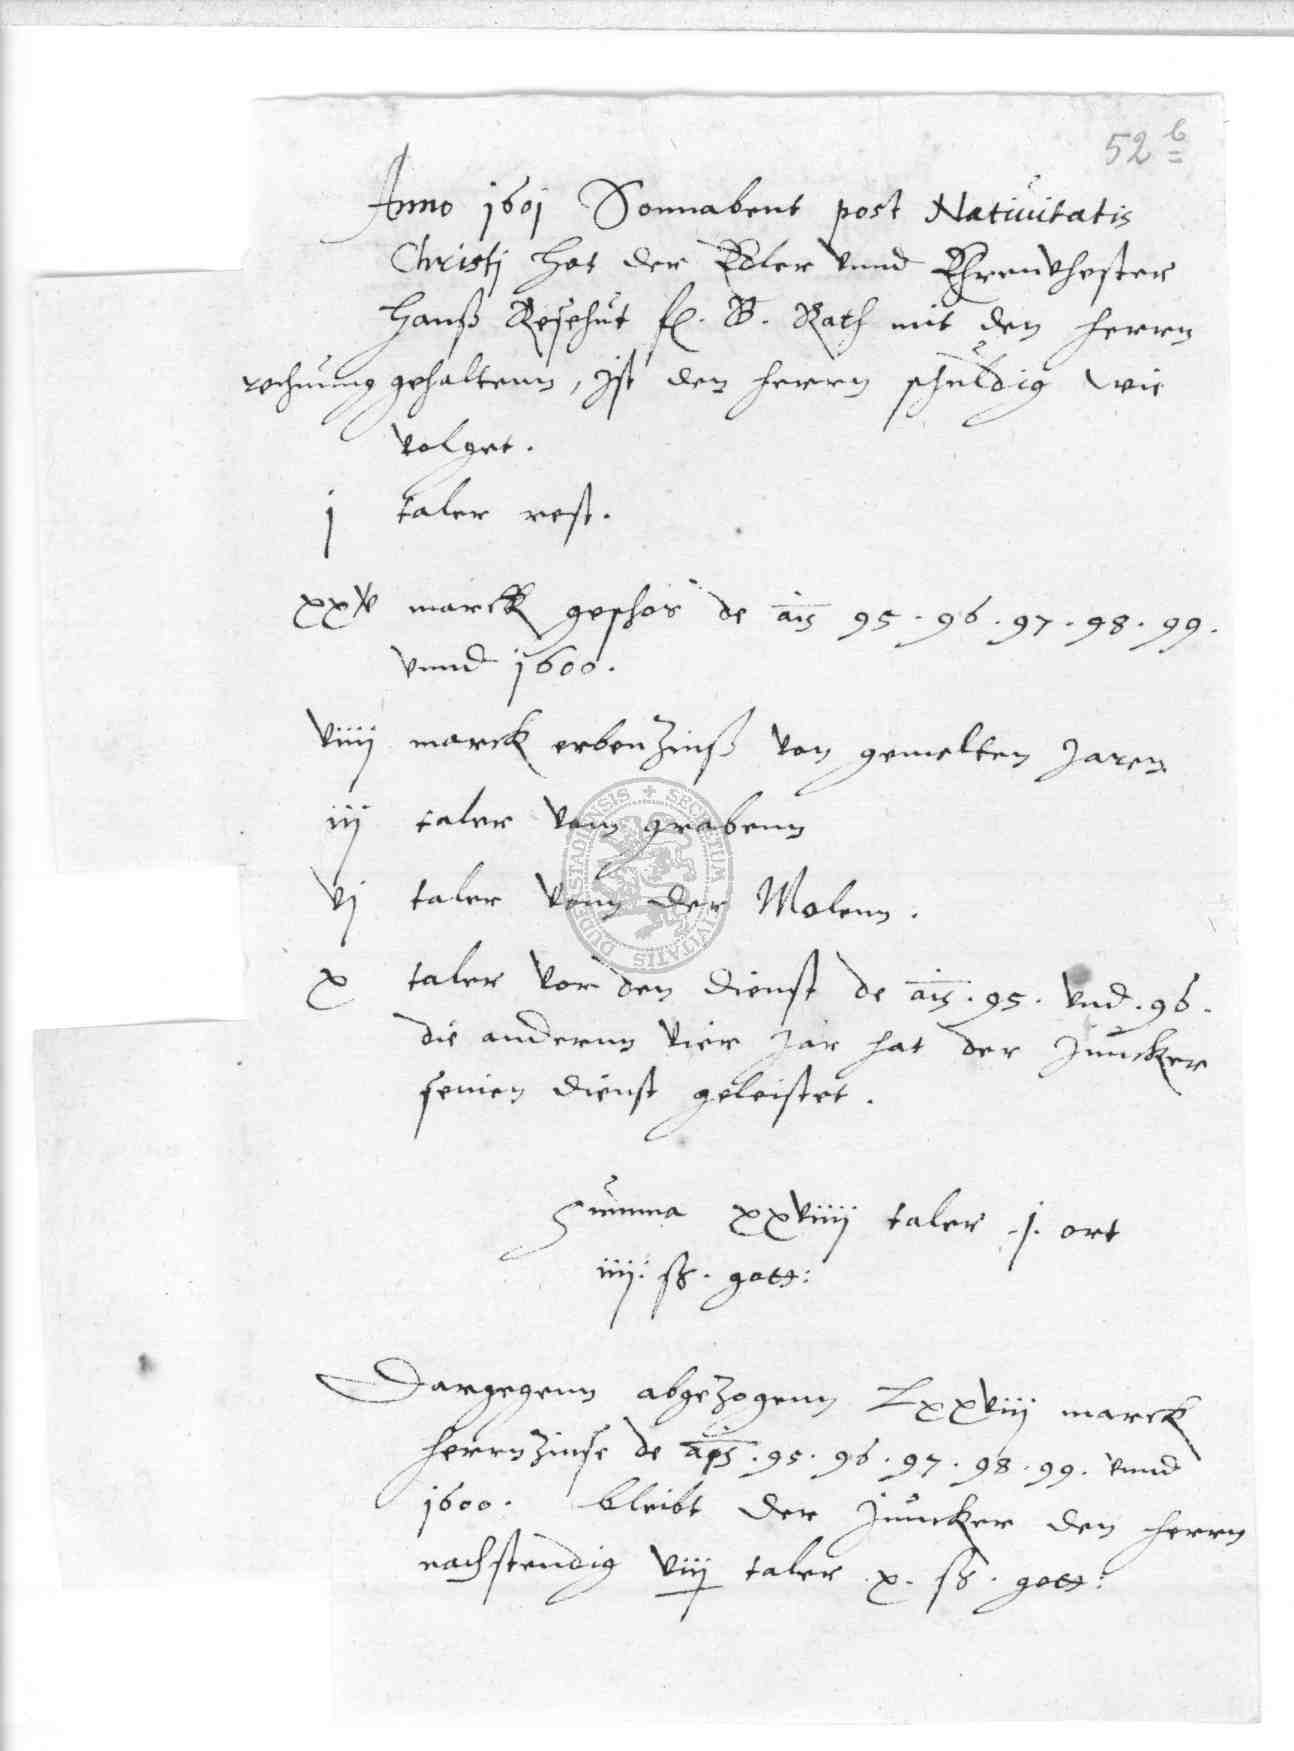 52 b
Anno 1601 Sonnabent post Nativitatis
Christj hat der Edler vnnd Ehrenvhester
Hanß f. B. Rath mit den herrn
rechnung gehaltenn, Ist den herrn schuldig wie
volget.
j taler rest.
xxv marck geschos de ais 95. 96. 97. 98. 99.
vnnd 1600.
viiij marck erbenzinß von gemelten Jaren
iij taler vom grabenn
vj taler vonn der Molenn.
x taler vor den dienst de ais. 95. vnd. 96.
die andernn vier Jar hat der Juncker
seinen dienst geleistet.
Summa xxviiij taler .j. ort
iiij. ß. gott:
Dargegenn abgezogenn Lxxviij marck
herrnzinse de ais. 95. 96. 97. 98. 99. vnnd
1600. bleibt der Juncker den herrn
nachstendig viij taler x. ß. gott:
SECRETUM CIVITATIS DUDERSTADIENSIS